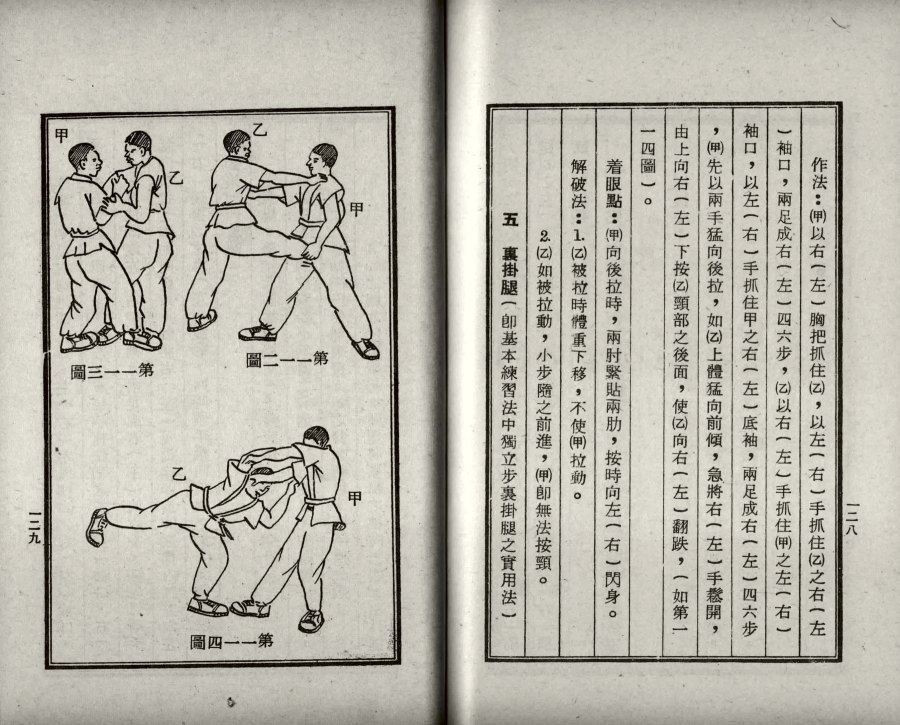 作法：㈙以右（左）胸把抓住㈚，以左（右）手抓住㈚之右（左
）袖口，兩足成右（左）四六步，㈚以右（左）手抓住㈙之左（右）
袖口，以左（右）手抓住甲之右（左）底袖，兩足成右（左）四六步
，㈙先以兩手猛向後拉，如㈚上體猛向前傾，急將右（左）手鬆開，
由上向右（左）下按㈚頸部之後面，使㈚向右（左）翻跌，（如第一
一四圖）。
着眼點：㈙向後拉時，兩肘緊貼兩肋，按時向左（右）閃身。
解破法：1.㈚被拉時體重下移，不使㈙拉動。
2.㈚如被拉動，小步隨之前進，㈙卽無法按頸。
五　裏掛腿（卽基本練習法中獨立步裏掛腿之實用法）
一二八
乙
甲
圖二一一第
甲
乙
圖三一一第
乙
甲
圖四一一第
一二九